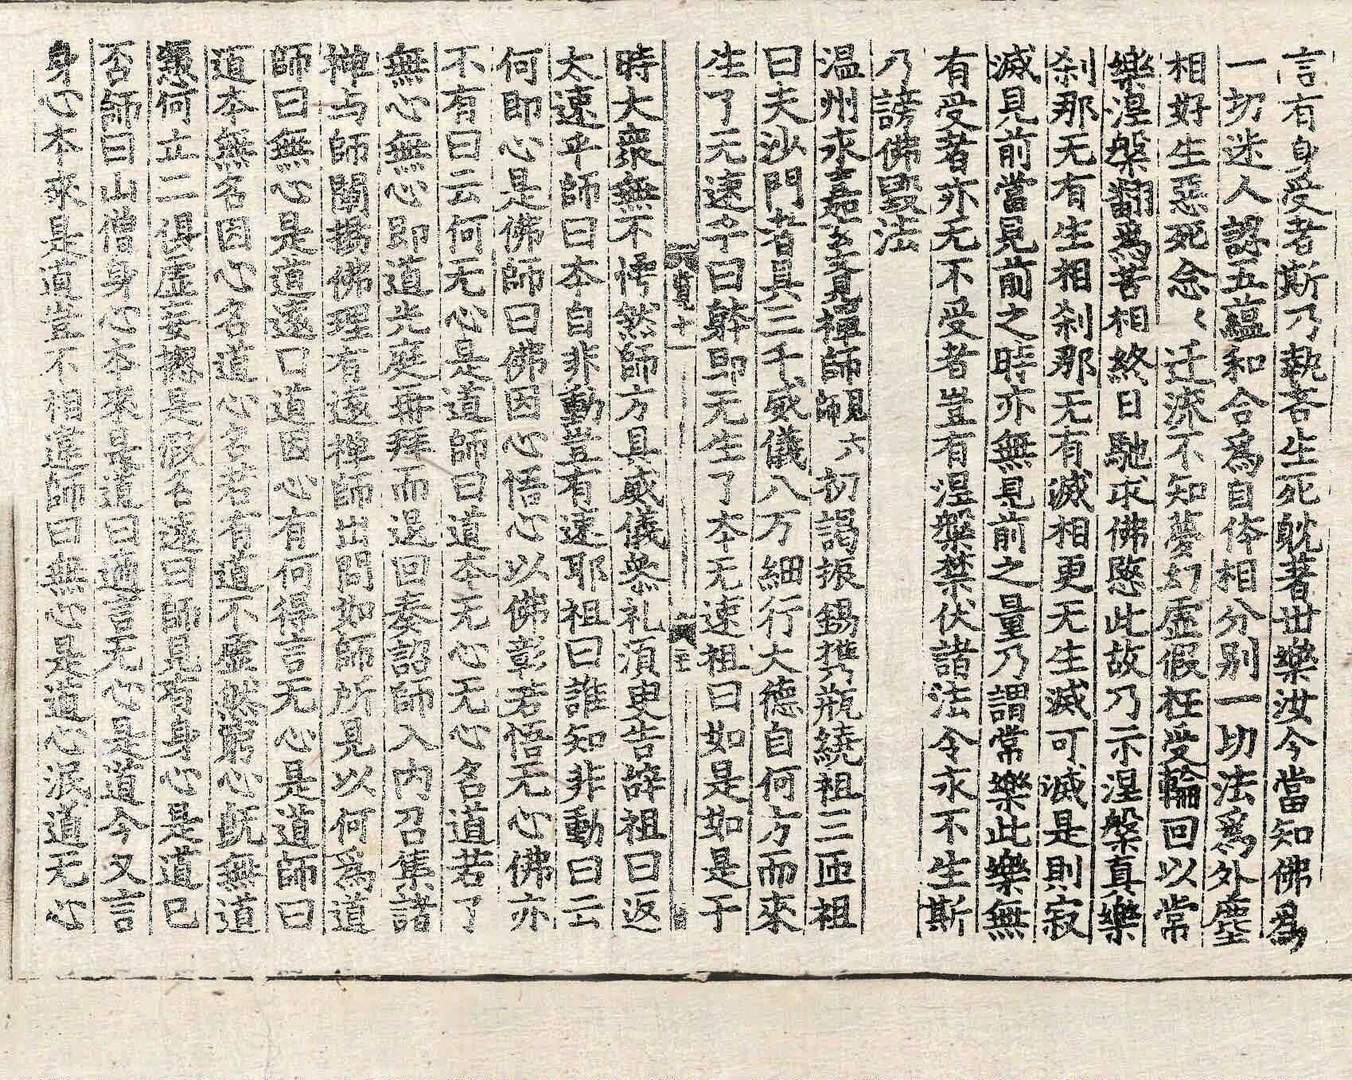 言有身受者斯乃執吝生死耽著世樂汝今當知佛爲
一切迷人認五蘊和合爲自体相分别一切法爲外塵
相好生惡死念〻迁流不知夢幻虛假枉受輪回以常
樂涅槃翻爲苦相終日馳求佛愍此故乃示涅槃真樂
刹那无有生相刹那无有滅相更无生滅可滅是則寂
滅見前當見前之時亦無見前之量乃謂常樂此樂無
有受者亦无不受者豈有涅槃禁伏諸法令永不生斯
乃謗佛毀法
温州永嘉玄覺禪師嗣六初謁振錫携瓶繞祖三匝祖
曰夫沙門者具三千威儀八万細行大德自何方而來
生了无速乎曰躰即无生了本无速祖曰如是如是于
時大衆無不愕然師方具威儀叅礼湏臾告辞祖曰返
太速乎師曰本自非動豈有速耶祖曰誰知非動曰云
何即心是佛師曰佛因心悟心以佛彰若悟无心佛亦
不有曰云何无心是道師曰道本无心无心名道若了
無心無心即道光庭再拜而退回奏詔師入内召集諸
禅与師闡揚佛理有遠禪師出問如師所見以何為道
師曰無心是道遠曰道因心有何得言无心是道師曰
道本無名因心名道心名若有道不虛然窮心旣無道
憑何立二俱虛妄揔是假名遠曰師見有身心是道已
否師曰山僧身心本來是道曰適言无心是道今又言
身心本來是道豈不相違師曰無心是道心泯道无心